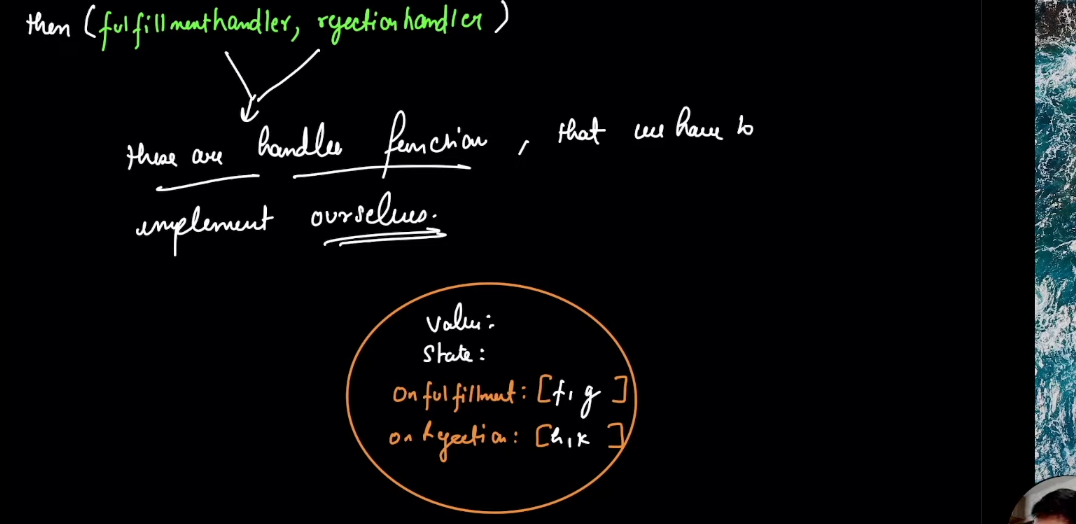 then (fulfillmenthandler, rejectionhandler)
these are handler function, that we have to
implement ourselves.
Value:
State:
Onfulfillment: [f, g ]
on Rejection: [h, k ]